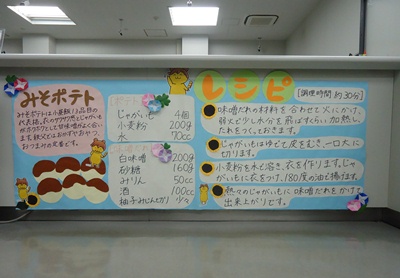 みそポテト
みそポテトは小昼飯11品目の
代表格。衣のサクサク感とじゃがいも
がホクホクとして甘味噌がよく合い
ます。秩父ではおかずにおやつ、
おつまみの定番です。
じゃがいも 4個
小麦粉 200g
水 70cc
白味噌 200g
砂糖 160g
みりん 50cc
酒 100cc
柚子みじんぎり 少々
レシピ
[調理時間 約30分]
味噌だれの材料を合わせて火にかけ、
弱火で少し水分を飛ばすくらい加熱し、
たれをつくっておきます。
じゃがいもはゆでて皮をむき、一口大に
切ります。
小麦粉を水で溶き、衣を作ります。じゃ
がいもに衣をつけ、180度の油で揚げます。
熱々のじゃがいもに味噌だれをかけて
出来上がりです。